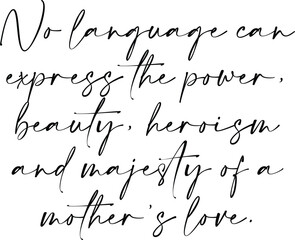 No language can
express the power,
beauty, heroism
and majesty of a
mother's love.